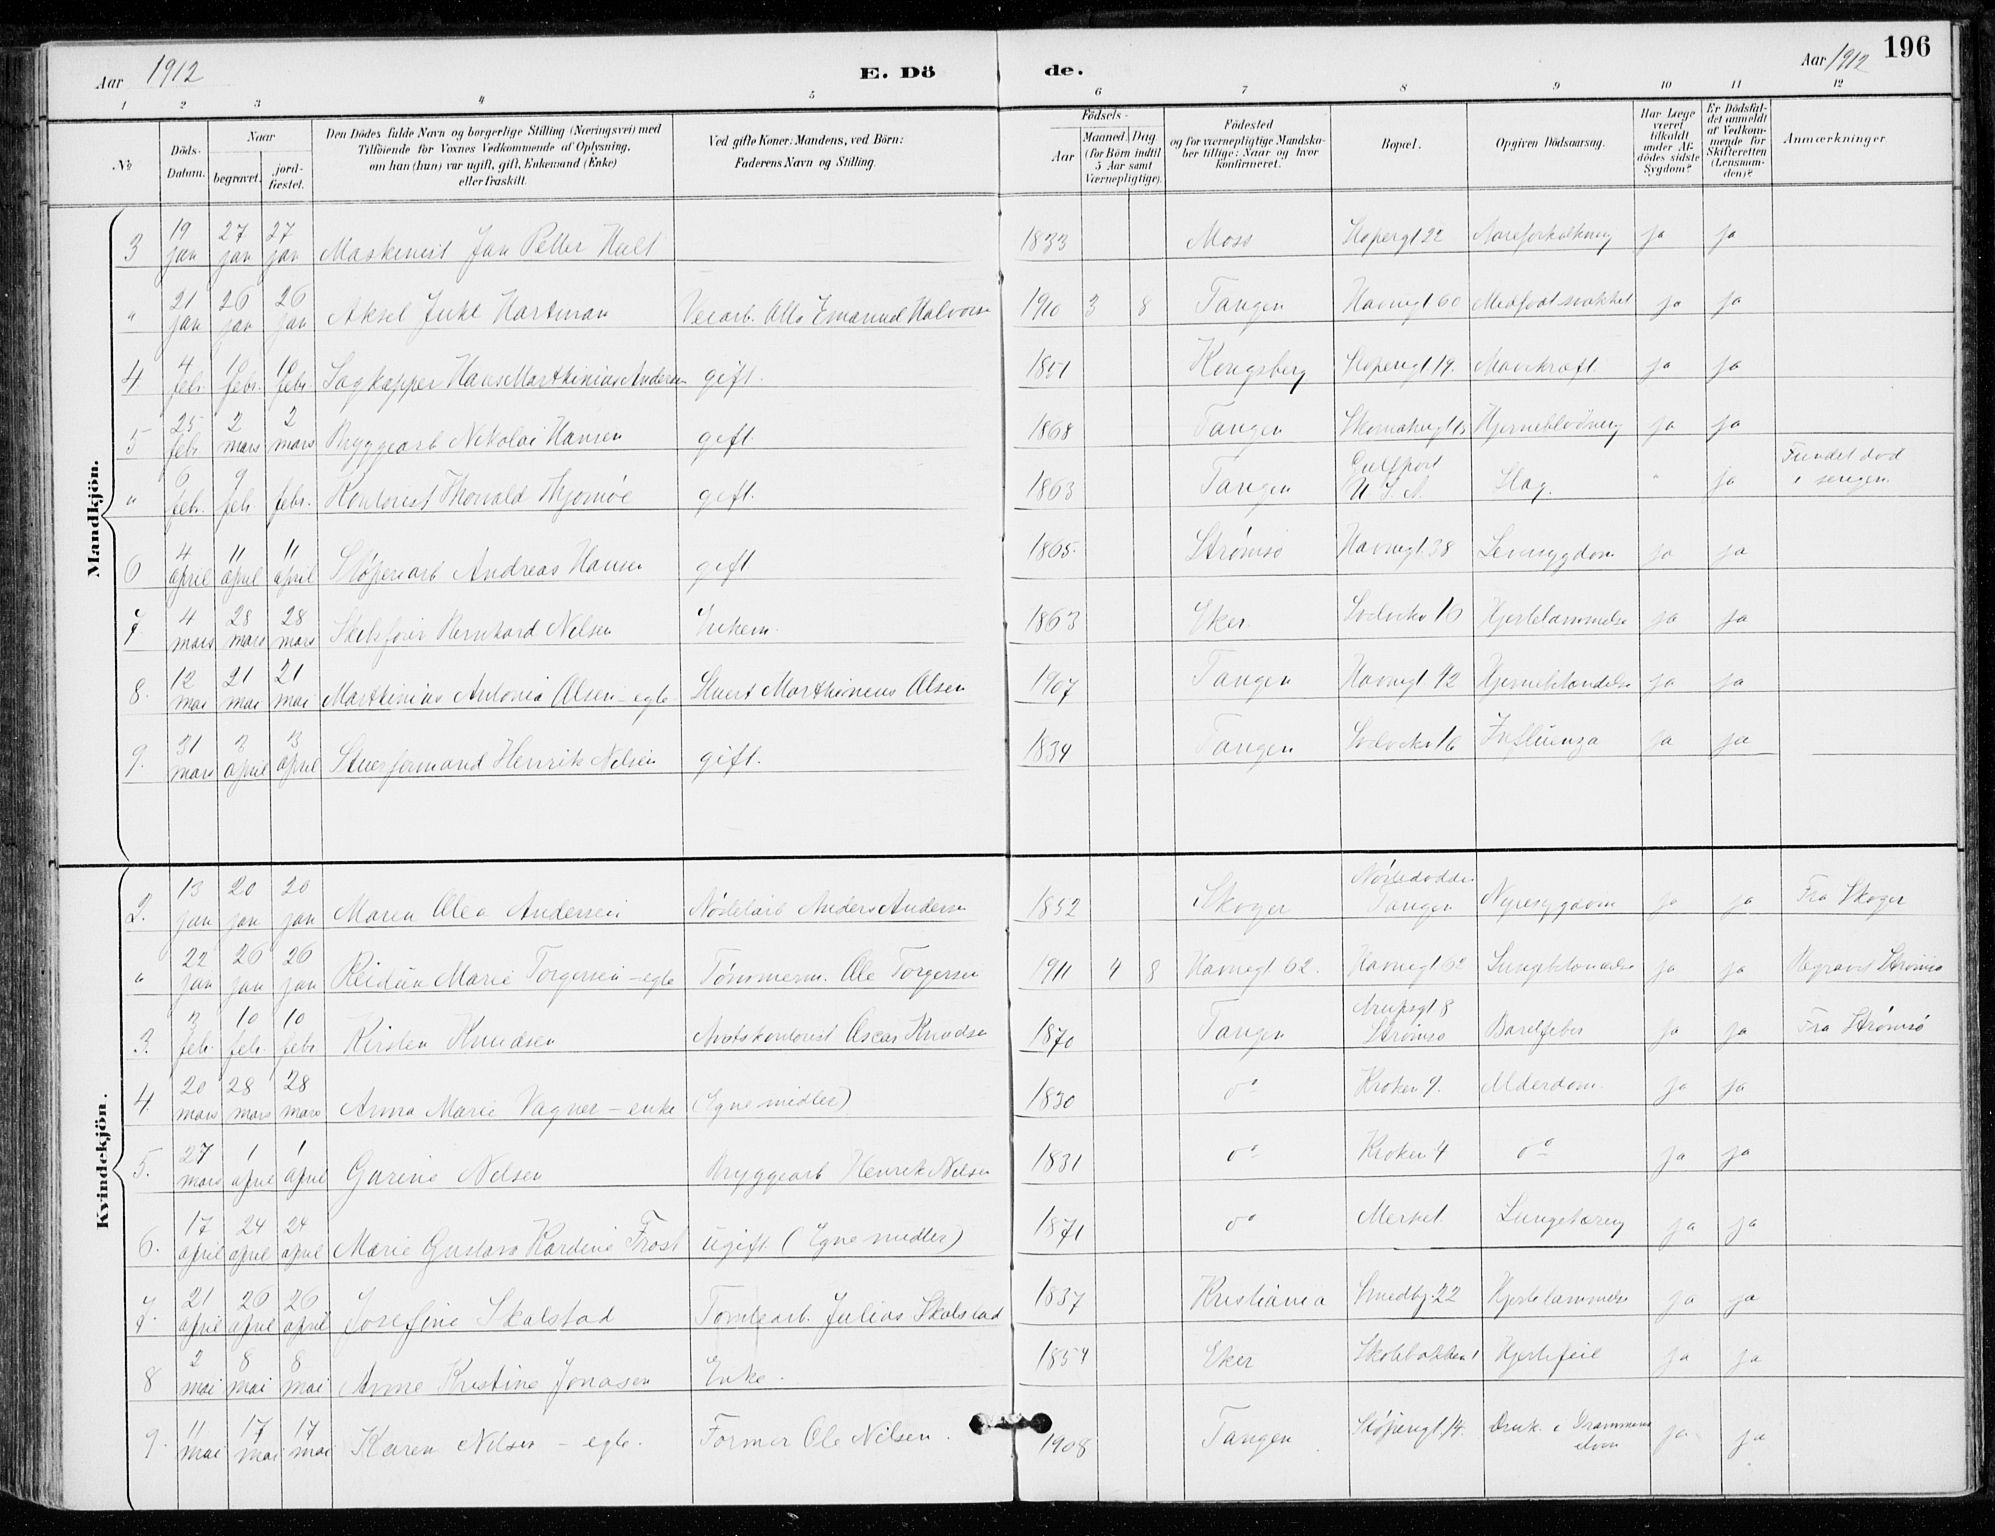 Aar 1912 E. Dö de. Aar 1912 196
1 2 3 4 5 6 7 8 9 10 11 12
№ Döds-Datum. Naar begravet. jord-fæstet. Den Dödes fulde Navn og borgerlige Stilling (Næringsvei) med Tilföiende for Voxnes Vedkommende af Oplysning, om han (hun) var ugift, gift, Enkemand (Enke) eller fraskilt. Ved gifte Koner: Mandens, ved Börn: Faderens Navn og Stilling. Födsels- Aar Maaned. Dag (for Börn indtil 5 Aar samt Værnepligtige). Födested og for værnepligtige Mandskaber tillige: Naar og hvor konfirmeret. Bopæl. Opgiven Dödsaarsag. Har Læge været tilkaldt under Afdödes sidste Sygdom? Er Dödsfaldet anmeldt af Vedkommende for Skifteretten (Lensmanden)? Anmærkninger
Mandkjön.
3 19 jan 27 jan 27 jan Maskinist Jan Petter Hult 1833 Moss Støpergt 22 Aareforkalkning ja ja
" 21 jan 26 jan 26 jan Aksel Juhl Hartman Veiarb. Otto Emanuel Halvorse 1910 3 8 Tangen Havnegt 60 Medfødt svakhet ja ja
4 4 febr. 10 febr. 10 febr. Hans Marthinius Andersen gift. 1851 Kongsberg Støpergt 19. Mavekræft ja ja
5 25 febr. 2 mars 2 mars Bryggearb Nikolai Hansen gift. 1868 Tangen Hjerneblødning ja ja
" 6 febr. 9 feb. febr. Kontorist Thorvald Hjomöe gift. 1863 Tangen Gulfport U.S.A. Slag. " ja Fundet død i sengen.
6 4 april 11 april 11 april Støperiarb Andreas Hansen gift 1865 Strømsø Havnegt 38 Leversygdom ja ja
7 4 mars 28 mars 28 mars Bernhard Nilsen Enkem. 1863 Eker 16 Hjertelammelse ja ja
8. 12 mai 21 mai 21 mai Marthinius Antonio Olsen - egte Stuert Marthinius Olsen 1907 Tangen Havnegt 42 Hjernebetændelse ja ja
9. 31 mars 3 april 3 april Henrik Nilsen gift. 1834 Tangen 16 Influenza ja ja
Kvindekjön.
2. 13 jan 20 jan 20 jan Maren Olea Andersen Anders Andersen 1852 Skoger Tangen Nyresygdom ja ja Fra Skoger
" 22 jan 26 jan 26 jan Reidun Marie Torgersen - egte Tømmerm. Ole Torgersen 1911 4 8 Havnegt 62. Havnegt 62 Lungebetændelse ja ja Begravet Strømsø
3. 3 feb. 10 feb. 10 febr Kirsten Knudsen Amtskontorist Oscar Knudsen 1870 Tangen Arupsgt 8 Strømsø Barselfeber ja ja Fra Strømsø
4. 20 mars 28 mars 28 mars Anna Marie Vagner - enke (Egne midler) 1830 do Kroken 9. Alderdom. ja ja
5. 27 mars 1 april 1 april Gurine Nilsen Bryggearb Henrik Nilsen 1831 do Kroken 4 do ja ja
6. 17 april 24 april 24 april Marie Gustava Kardine Frost ugift. (Egne midler) 1871 do Merket. Lungetæring ja ja
7. 21 april 26 april 26 april Josefine Skalstad Tomtearb. Julius Skalstad 1837 Kristiania Smedbj. 22 Hjertelammelse ja ja
8 2 mai 8 mai 8 mai Anne Kristine Jonasen Enke. 1854 Eker Skolebakken 1 Hjertefeil ja ja
9. 11 mai 17 mai 17 mai Karen Nilsen - egte. Former Ole Nilsen. 1908 Tangen Støpergt 14. Druk. i Drammens elven ja ja